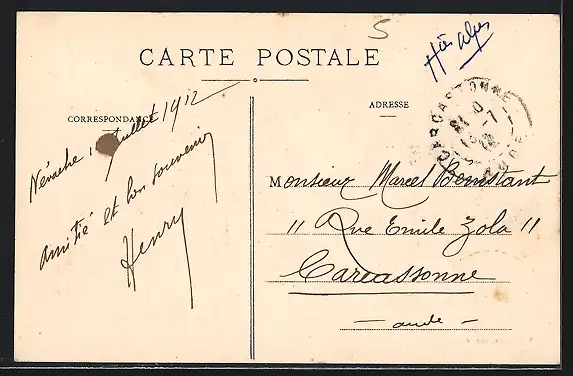 5
Htes Alpes
CARTE POSTALE
CORRESPONDANCE
ADRESSE
CARCASSONNE
AUDE
Névache Juillet 1912
Amitié et bon souvenir
Henry
Monsieur Marcel Constant
11 Rue Emile Zola 11
Carcassonne
- aude -